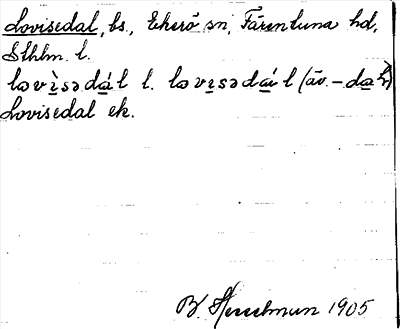 Lovisedal, bs., Ekerö sn, Färentuna hd,
Sthlm. l.
lovìsədál l. lovisədál (äv. –
Lovisedal ek.
B. Hesselman 1905